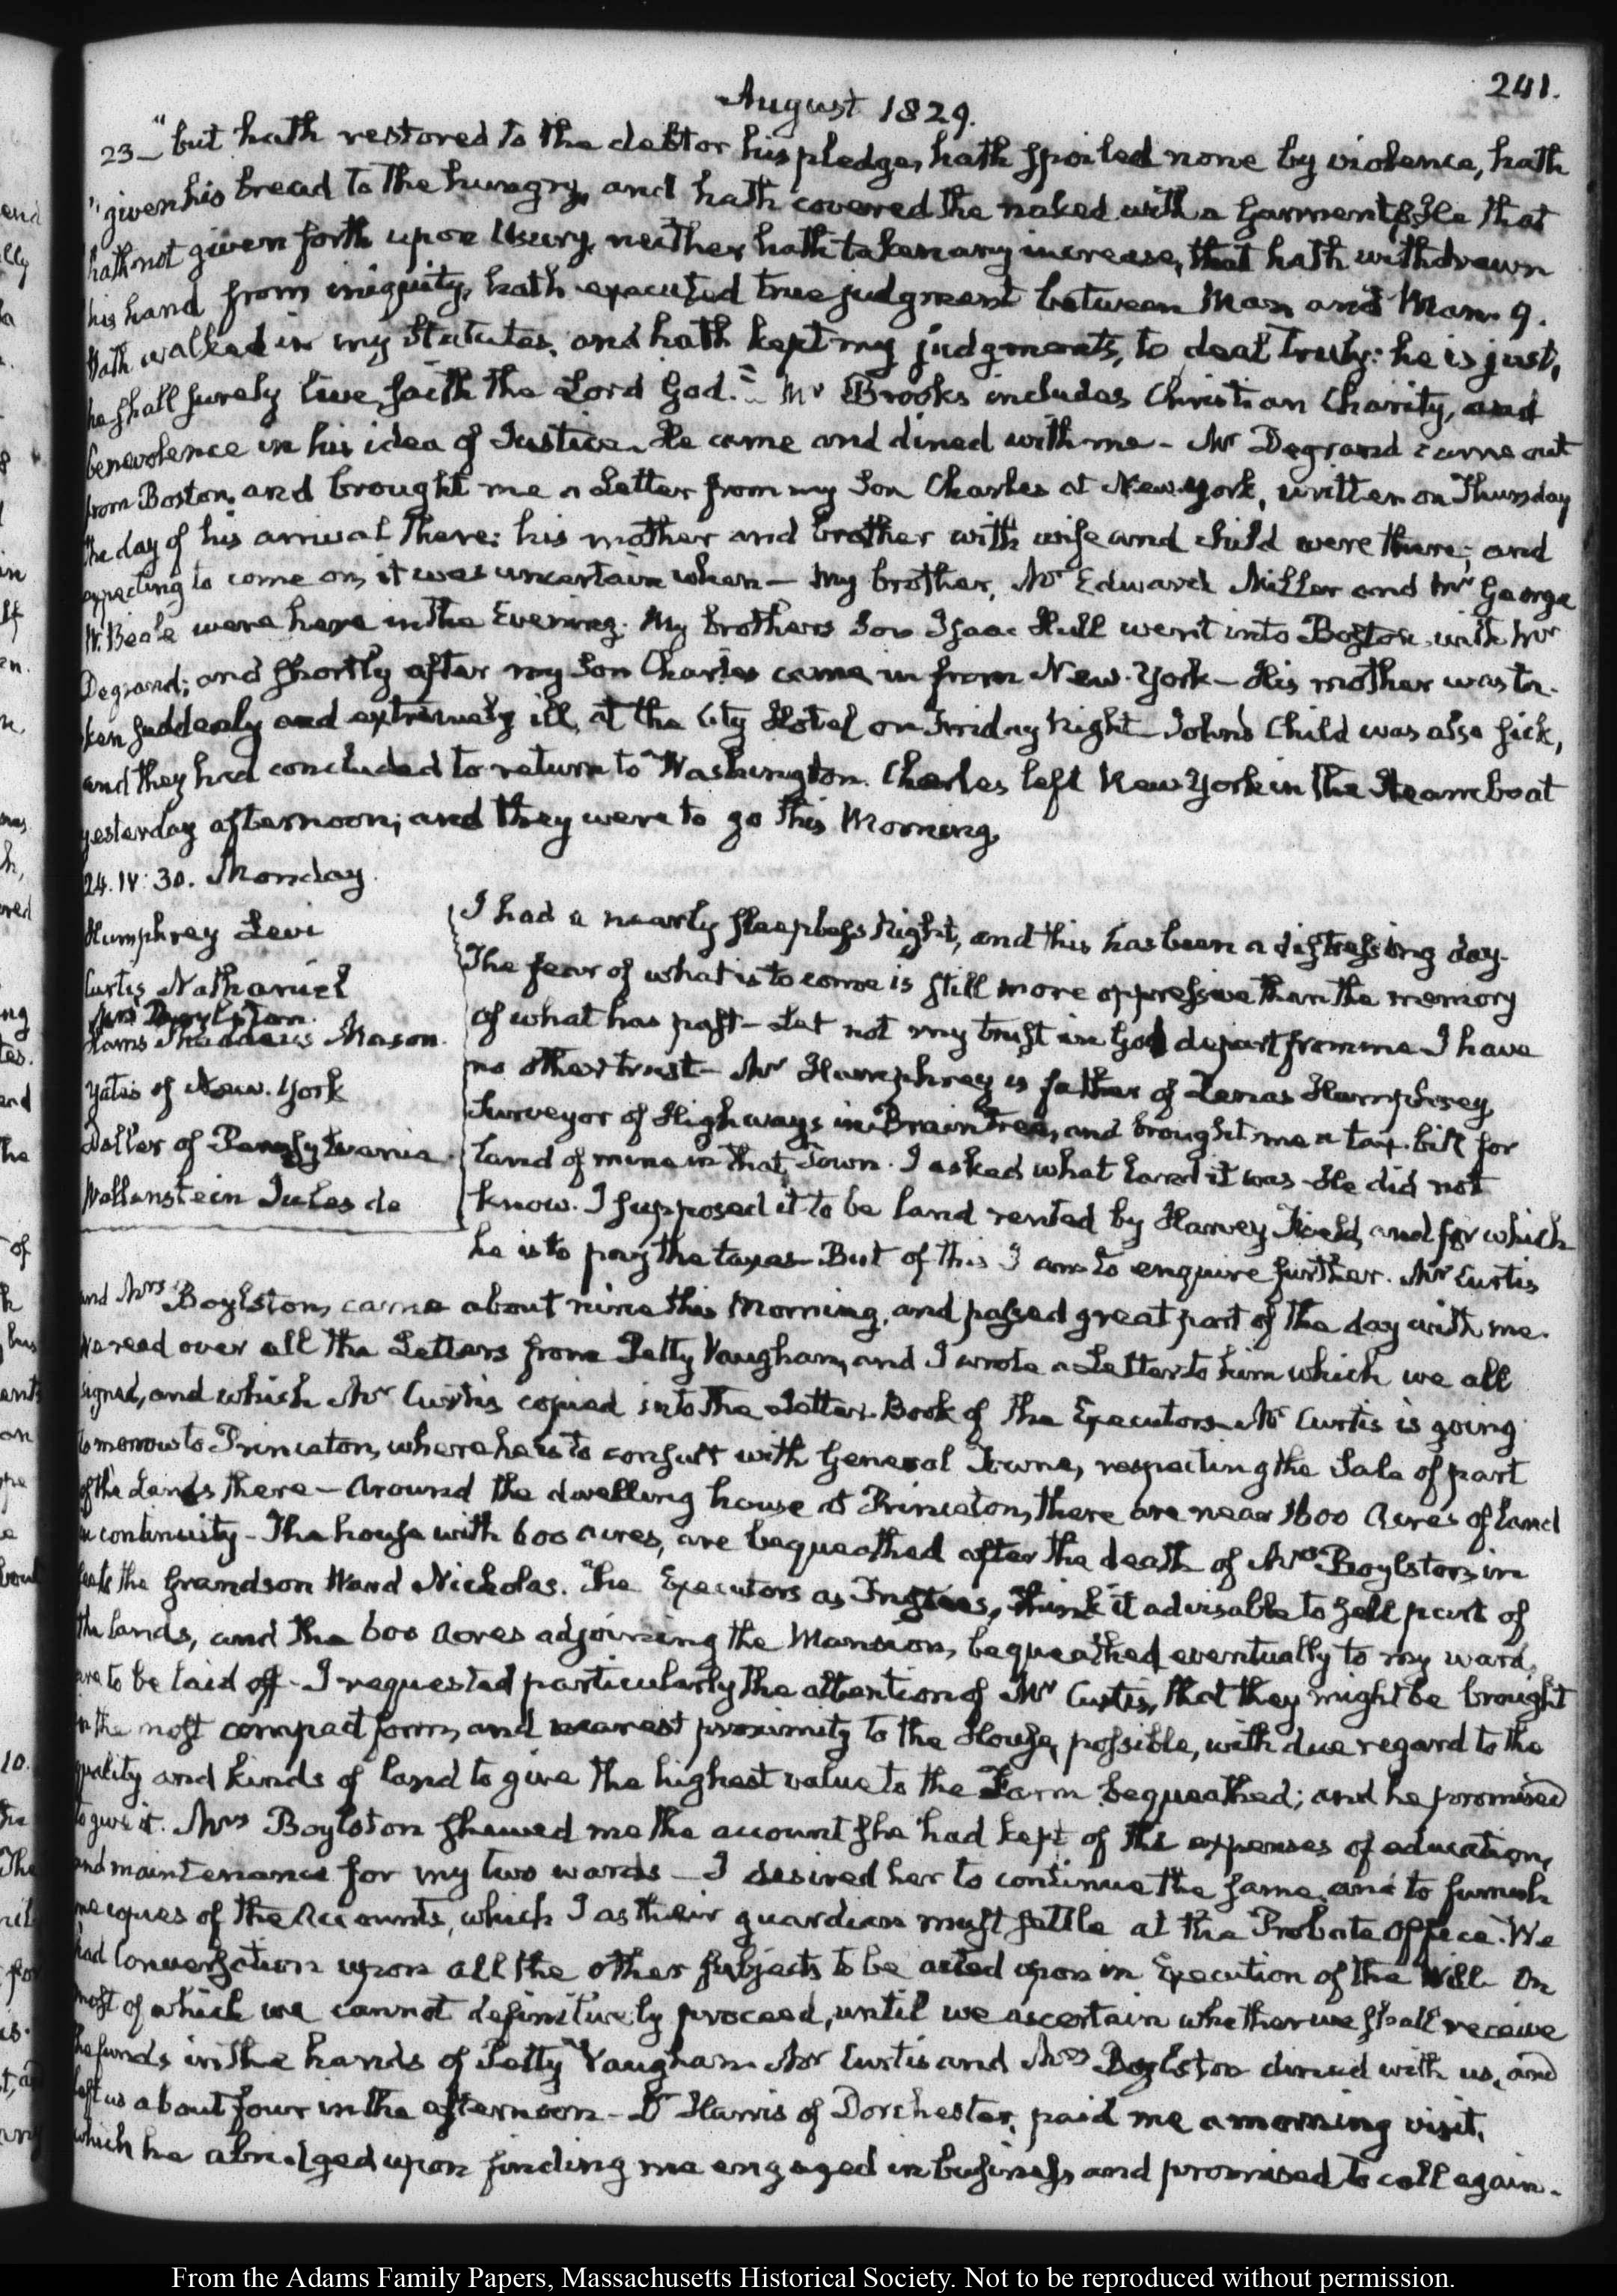 241.
August 1829.
23— "but hath restored to the debtor his pledge, hath spoiled none by violence, hath
"given his bread to the hungry, and hath covered the naked with a Garment 8 He that
hath not given forth upon Usury, neither hath taken any increase, that hath withdrawn
his hand from iniquity, hath executed true judgment between Man and Man. 9.
Hath walked in my Statutes, and hath kept my judgments, to deal truly: he is just,
he shall surely live, saith the Lord God." Mr Brooks includes Christian Charity, and
benevolence in his idea of Justice. He came and dined with me - Mr Degrand came out
from Boston, and brought me a Letter from my Son Charles at New-York, written on Thursday
the day of his arrival there: his mother and brother with wife and child were there; and
expecting to come on, it was uncertain when — My brother, Mr Edward Miller and Mr George
W. Beale were here in the Evening. My brothers Son Isaac Hull went into Boston, with Mr
Degrand; and shortly after my Son Charles came in from New-York — His mother was ta-
ken suddenly and extremely ill, at the City Hotel on Friday Night — John's Child was also sick,
and they had concluded to return to Washington. Charles left New York in the Steam boat
yesterday afternoon; and they were to go this Morning.
24. IV: 30. Monday.
Humphrey Levi
Curtis Nathaniel
Mrs Boylston.
Harris Thaddeus Mason.
Yates of New-York
Deller of Pennsylvania
Wallenstein Jules de
I had a nearly sleepless Night, and this has been a distressing day.
The fear of what is to come is still more oppressive than the memory
of what has past — Let not my trust in God depart from me I have
no other trust — Mr Humphrey is father of Lemas Humphrey,
Surveyor of Highways in Braintree, and brought me a tax-bill for
land of mine in that Town. I asked what Land it was — He did not
know. I supposed it to be land rented by Harvey Field, and for which
he is to pay the taxes — But of this I am to enquire further. Mr Curtis
and Mrs Boylston, came about nine this Morning, and passed great part of the day with me.
We read over all the Letters from Petty Vaughan, and I wrote a Letter to him which we all
signed, and which Mr Curtis copied into the Letter-Book of the Executors — Mr Curtis is going
to morrow to Princeton, where he is to consult with General Towne, respecting the Sale of part
of the Lands there — Around the dwelling house at Princeton, there are near 1600 Acres of Land
in continuity — The house with 600 acres, are bequeathed after the death of Mrs Boylston, in
the Grandson Ward Nicholas. The Executors as Trustees, think it advisable to sell part of
the lands, and the 600 Acres adjoining the Mansion, bequeathed eventually to my ward,
are to be laid off — I requested particularly the attention of Mr Curtis, that they might be brought
in the most compact form, and nearest proximity to the House, possible, with due regard to the
quality and kinds of land to give the highest value to the Farm bequeathed; and he promised
to give it. Mrs Boylston shewed me the account she had kept of the expenses of education,
and maintenance for my two wards — I desired her to continue the same, and to furnish
me copies of the Accounts, which I as their guardian must settle at the Probate Office. We
had Conversation upon all the other subjects to be acted upon in Execution of the Will — On
most of which we cannot definitively proceed, until we ascertain whether we shall receive
the funds in the hands of Petty Vaughan. Mr Curtis and Mrs Boylston dined with us, and
left us about four in the afternoon — Dr Harris of Dorchester, paid me a morning visit,
which he abridged upon finding me engaged in business, and promised to call again.
From the Adams Family Papers, Massachusetts Historical Society. Not to be reproduced without permission.